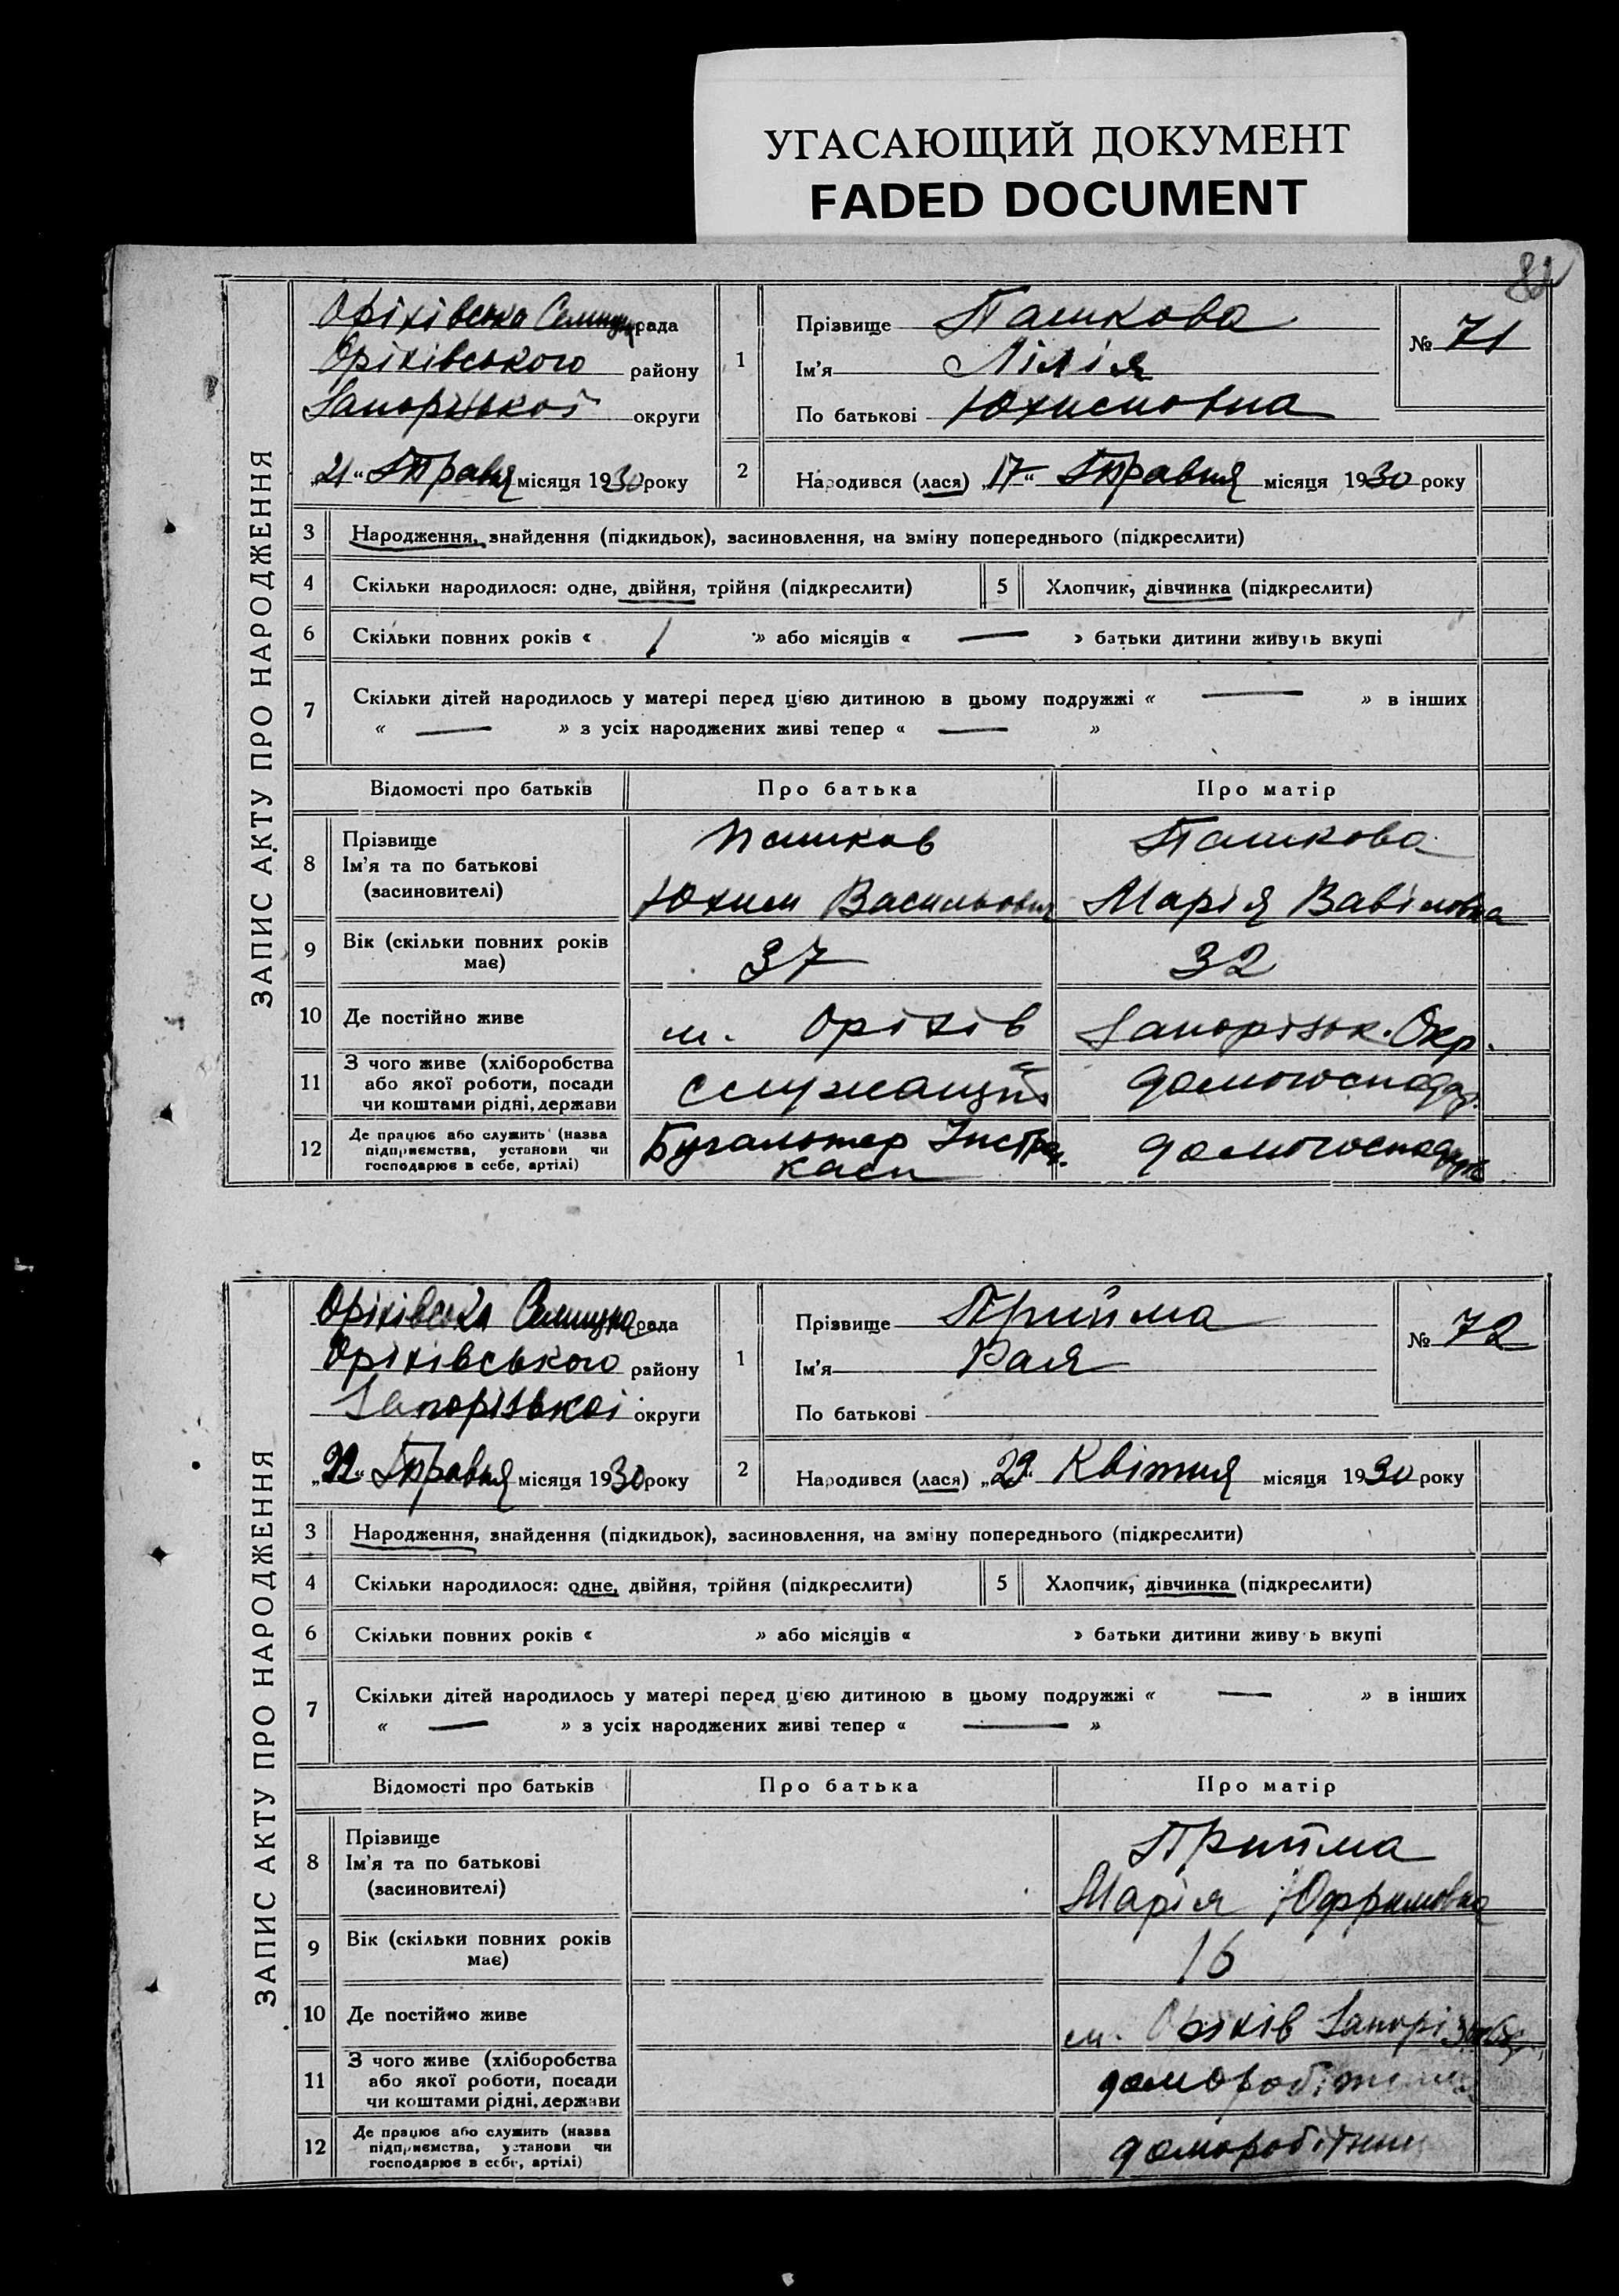 УГАСАЮЩИЙ ДОКУМЕНТ
FADED DOCUMENT
ЗАПИС АКТУ ПРО НАРОДЖЕННЯ
Оріхівська Селищна рада
Оріхівського району
Запорізької округи
„21“ Травня місяця 1930 року
1
Прізвище Пашкова
Ім'я Лілія
По батькові Юхимовна
№ 71
2
Народився (лася) „17“ Травня місяця 1930 року
3 Народження, знайдення (підкидьок), засиновлення, на зміну попереднього (підкреслити)
4 Скільки народилося: одне, двійня, трійня (підкреслити) 5 Хлопчик, дівчинка (підкреслити)
6 Скільки повних років « 1 » або місяців « — » батьки дитини живуть вкупі
7 Скільки дітей народилось у матері перед цією дитиною в цьому подружжі « — » в інших
« — » з усіх народжених живі тепер « — »
Відомості про батьків Про батька Про матір
8 Прізвище Пашков Пашкова
Ім'я та по батькові
(засиновителі) Юхим Васильович Марія Вавіловна
9 Вік (скільки повних років
має) 37 32
10 Де постійно живе м. Оріхів Запорізьк. Окр.
11 З чого живе (хліборобства
або якої роботи, посади
чи коштами рідні, держави служащий домогосподар.
12 Де працює або служить (назва
підприємства, установи чи
господарює в себе, артілі) Бугальтер каси
ЗАПИС АКТУ ПРО НАРОДЖЕННЯ
Оріхівська Селищна рада
Оріхівського району
Запорізької округи
„22“ Травня місяця 1930 року
1
Прізвище Прийма
Ім'я Рая
По батькові
№ 72
2
Народився (лася) „29“ Квітня місяця 1930 року
3 Народження, знайдення (підкидьок), засиновлення, на зміну попереднього (підкреслити)
4 Скільки народилося: одне, двійня, трійня (підкреслити) 5 Хлопчик, дівчинка (підкреслити)
6 Скільки повних років « » або місяців « » батьки дитини живуть вкупі
7 Скільки дітей народилось у матері перед цією дитиною в цьому подружжі « — » в інших
« — » з усіх народжених живі тепер « — »
Відомості про батьків Про батька Про матір
8 Прізвище Прийма
Ім'я та по батькові
(засиновителі) Марія
9 Вік (скільки повних років
має) 16
10 Де постійно живе м. Оріхів
11 З чого живе (хліборобства
або якої роботи, посади
чи коштами рідні, держави
12 Де працює або служить (назва
підприємства, установи чи
господарює в себе, артілі)